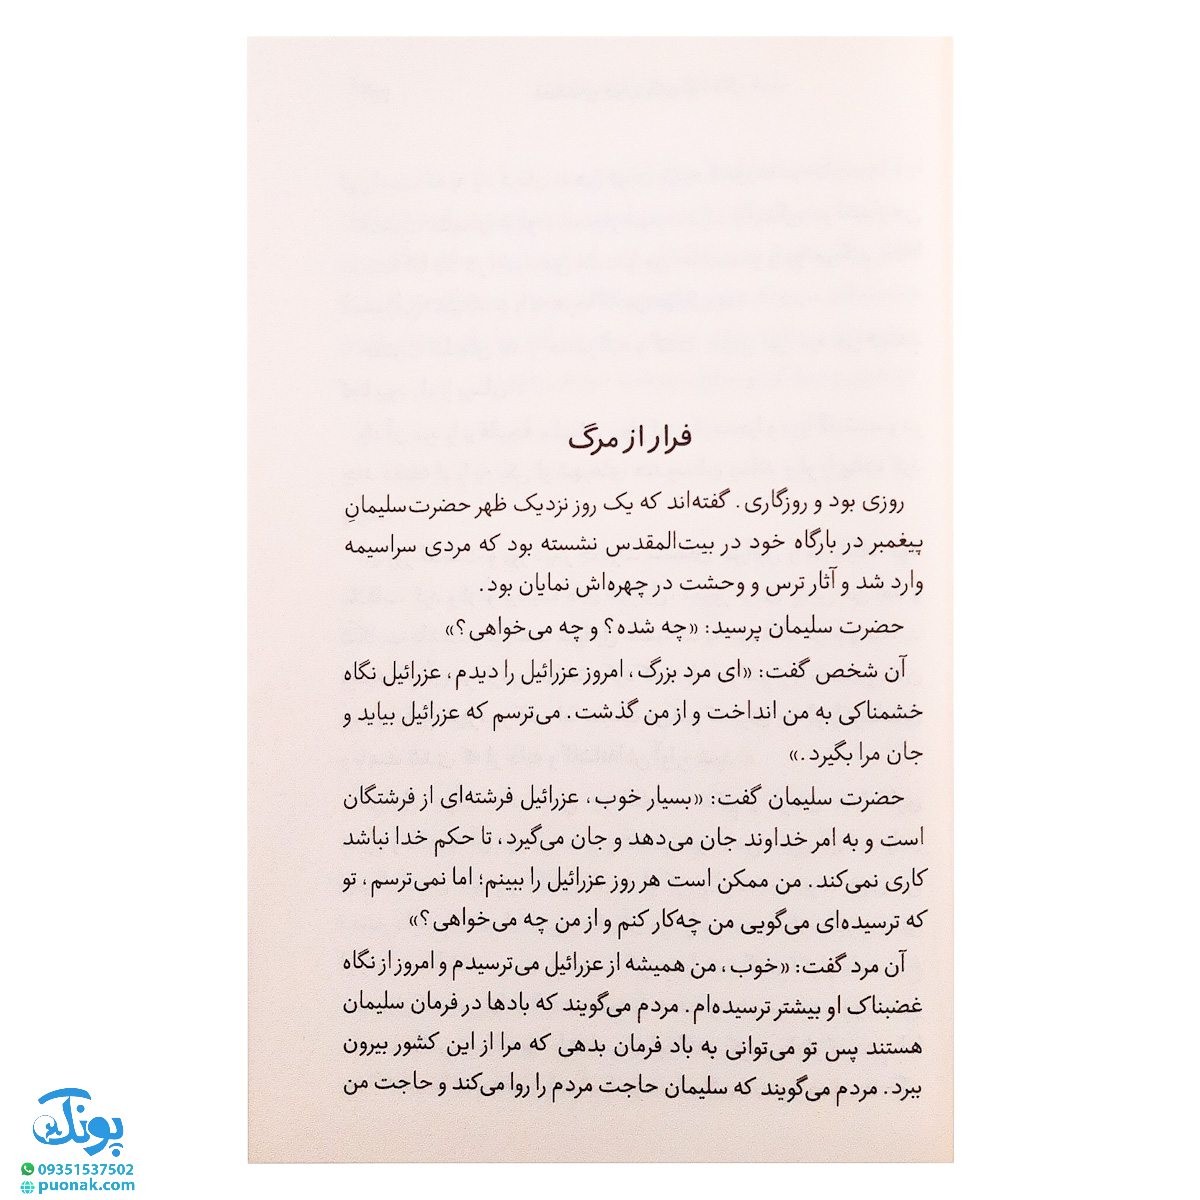 فرار از مرگ
روزی بود و روزگاری. گفته‌اند که یک روز نزدیک ظهر حضرت‌سلیمانِ
پیغمبر در بارگاه خود در بیت‌المقدس نشسته بود که مردی سراسیمه
وارد شد و آثار ترس و وحشت در چهره‌اش نمایان بود.
حضرت سلیمان پرسید: «چه شده؟ و چه می‌خواهی؟»
آن شخص گفت: «ای مرد بزرگ، امروز عزرائیل را دیدم، عزرائیل نگاه
خشمناکی به من انداخت و از من گذشت. می‌ترسم که عزرائیل بیاید و
جان مرا بگیرد.»
حضرت سلیمان گفت: «بسیار خوب، عزرائیل فرشته‌ای از فرشتگان
است و به امر خداوند جان می‌دهد و جان می‌گیرد، تا حکم خدا نباشد
کاری نمی‌کند. من ممکن است هر روز عزرائیل را ببینم؛ اما نمی‌ترسم، تو
که ترسیده‌ای می‌گویی من چه‌کار کنم و از من چه می‌خواهی؟»
آن مرد گفت: «خوب، من همیشه از عزرائیل می‌ترسیدم و امروز از نگاه
غضبناک او بیشتر ترسیده‌ام. مردم می‌گویند که بادها در فرمان سلیمان
هستند پس تو می‌توانی به باد فرمان بدهی که مرا از این کشور بیرون
ببرد. مردم می‌گویند که سلیمان حاجت مردم را روا می‌کند و حاجت من
پونک
09351537502
puonak.com